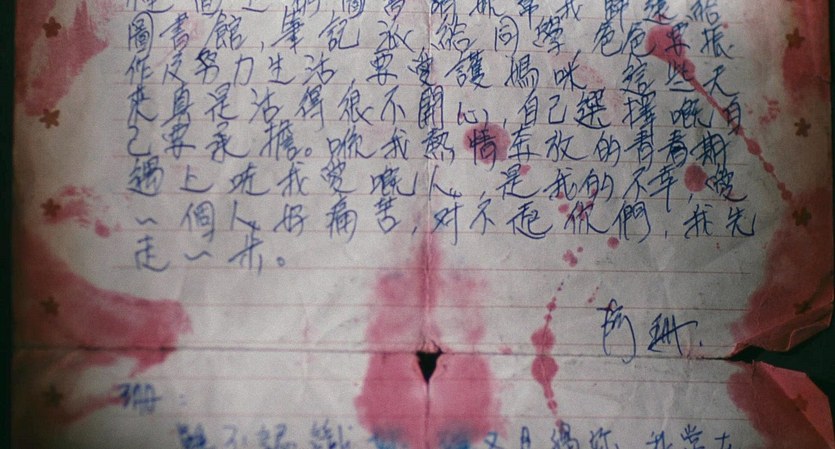 圖書 幫我歸還給
圖書館,筆記派給同學,爸爸要振
作及努力生活,要愛護媽咪,這些天
來真是活得很不開心,自己選擇嘅自
己要承擔。喺我熱情奔放的青春期
遇上咗我愛嘅人,是我的不幸,愛
一個人好痛苦,对不起你們,我先
走一步。
阿珊.
珊: